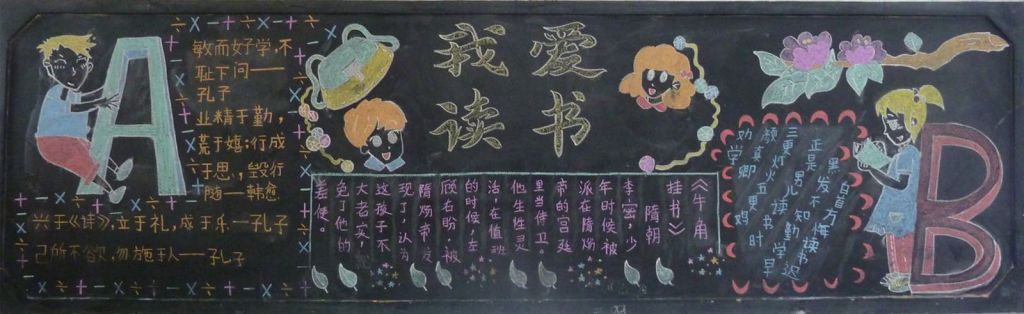 敏而好学,不
耻下问——
孔子
业精于勤,
荒于嬉;行成
于思,毁行
随——韩愈
兴于《诗》,立于礼,成于乐—孔子
己所不欲,勿施于人——孔子
我爱
读书
《牛角
挂书》
隋朝
李密,少
年时候被
派在隋炀
帝的宫廷
里当侍卫。
他生性灵
活,在值班
的时候,左
顾右盼,被
隋炀帝发
现了,认为
这孩子不
大老实,
免了他的
差使。
劝学
颜真卿
三更灯火五更鸡
正是男儿读书时
黑发不知勤学早
白首方悔读书迟
A
B